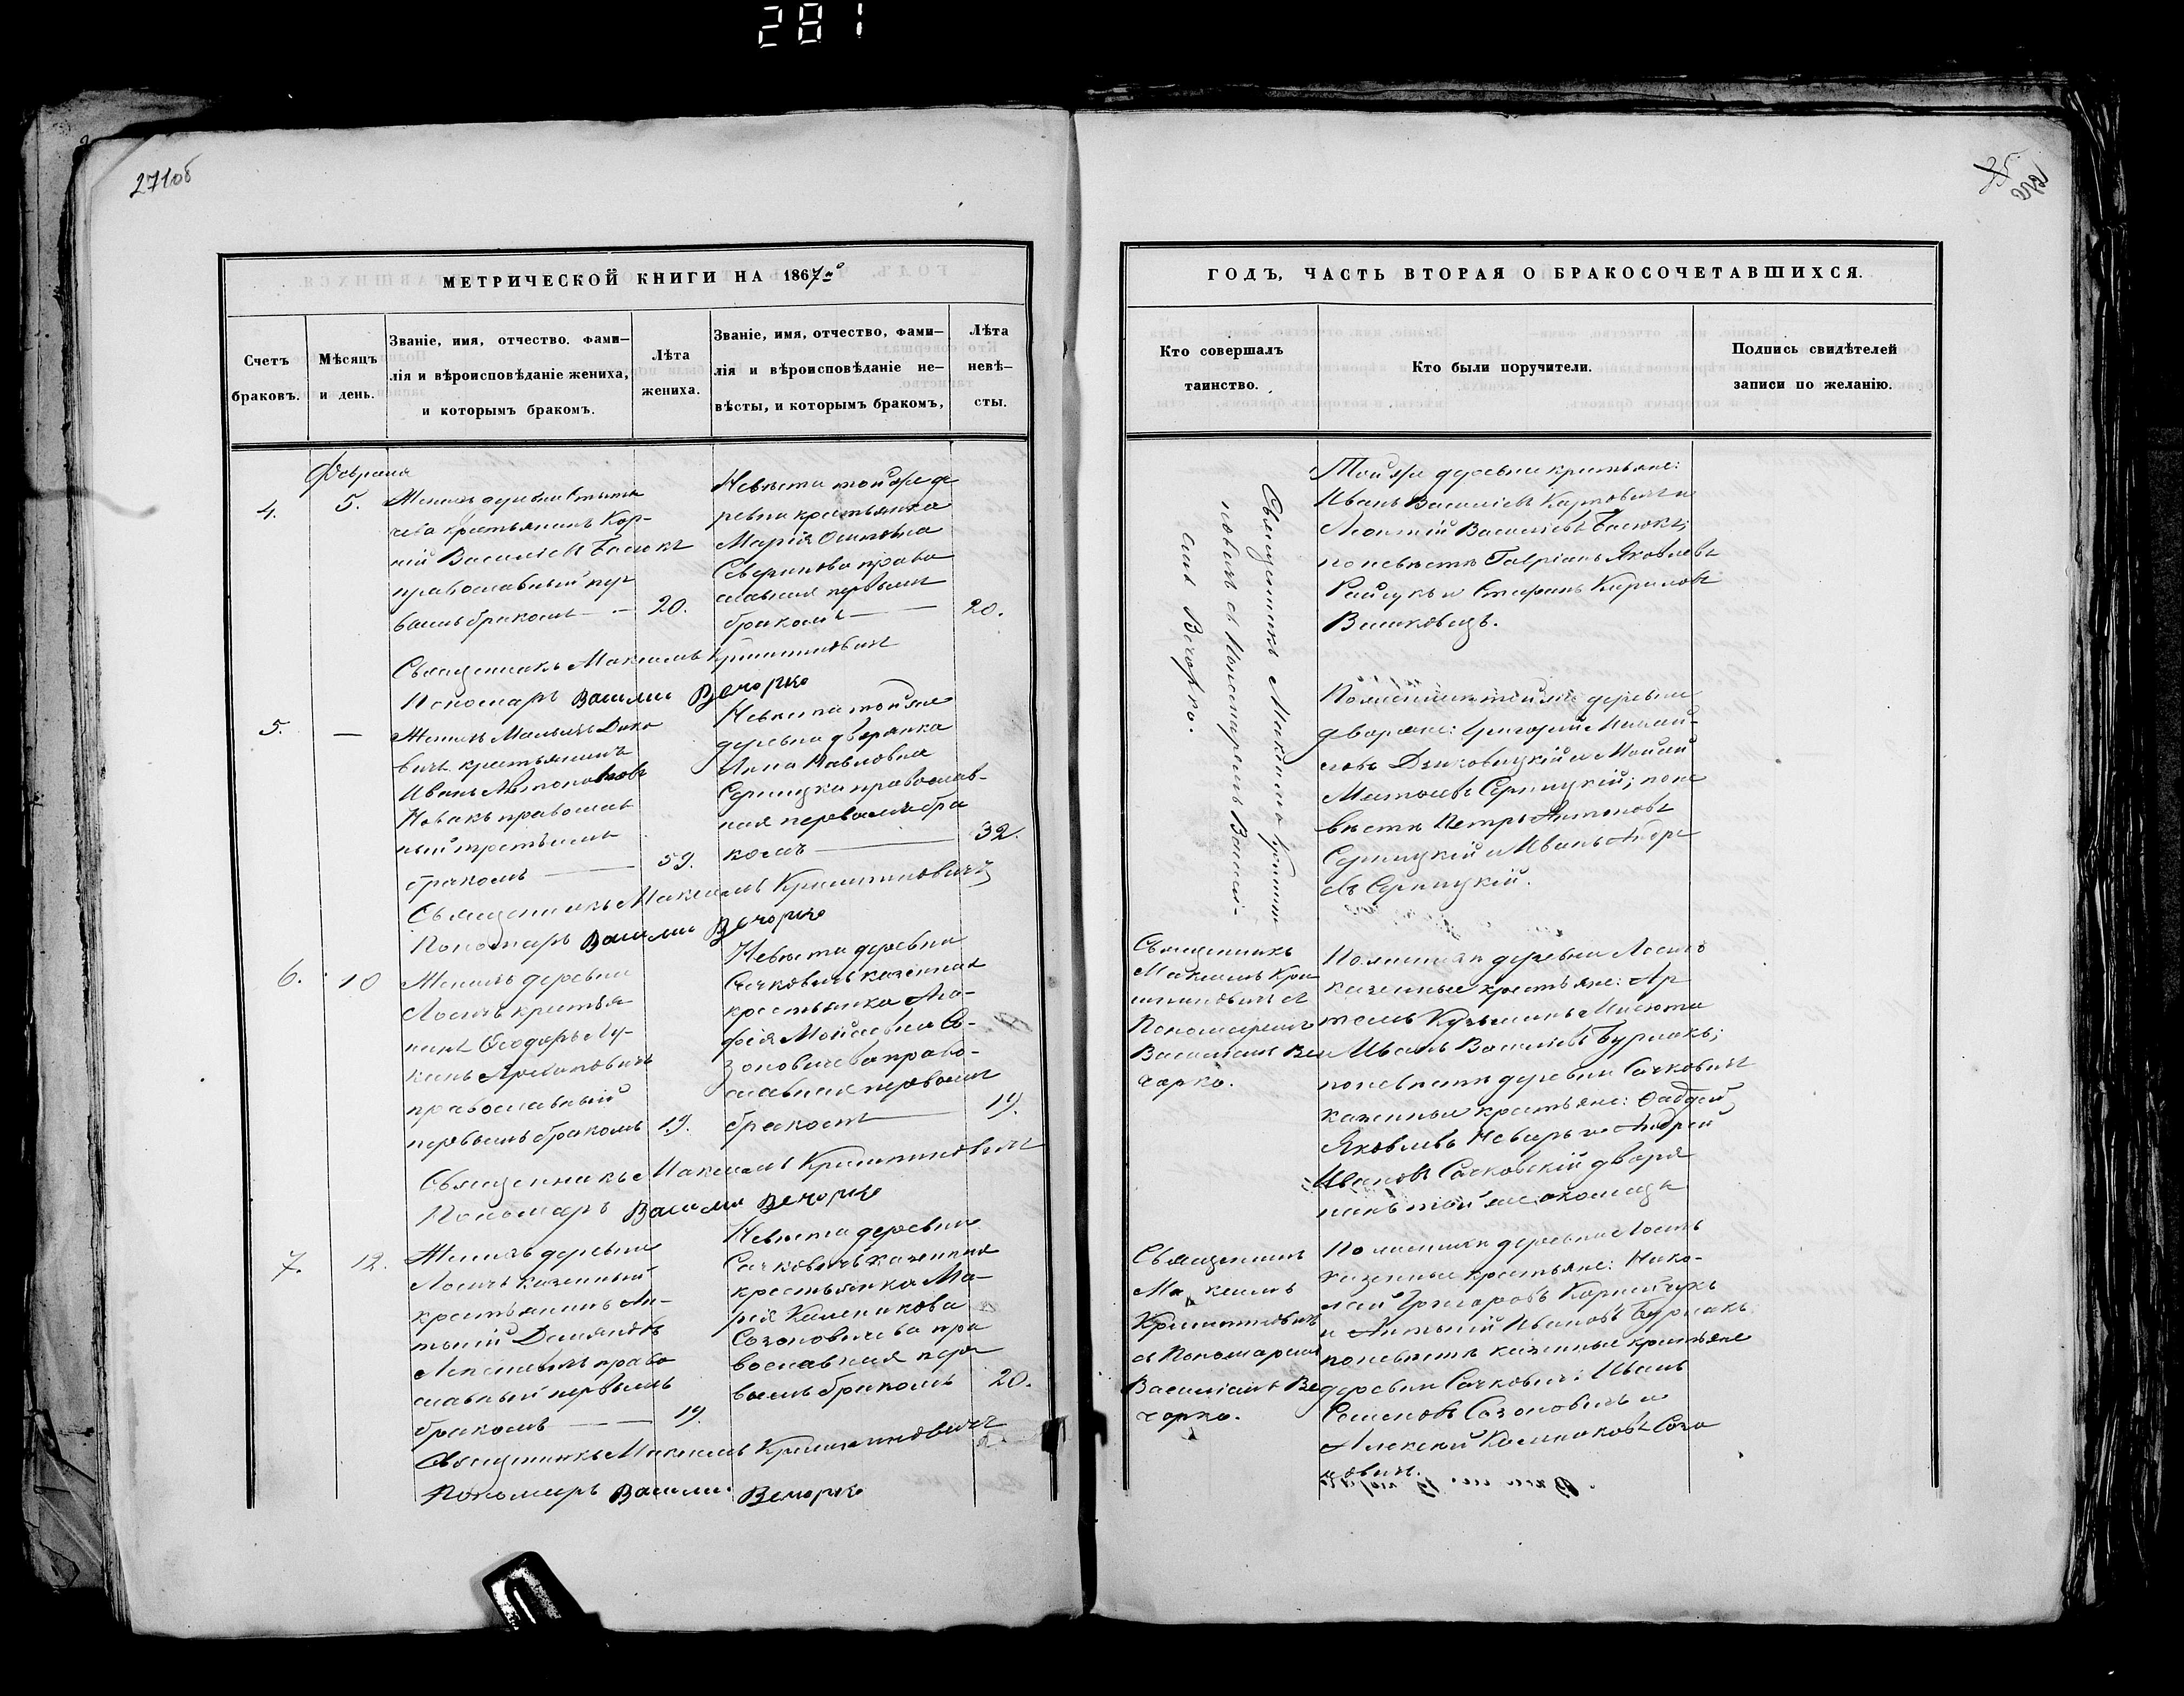 281
271об
35
МЕТРИЧЕСКОЙ КНИГИ НА 1867й
Счетъ браковъ.
Мѣсяцъ и день.
Званіе, имя, отчество, фами-
лія и вѣроисповѣданіе жениха,
и которымъ бракомъ.
Лѣта жениха.
Званіе, имя, отчество, фами-
лія и вѣроисповѣданіе не-
вѣсты, и которымъ бракомъ,
Лѣта невѣ-
сты.
Февраля
4.
5.
Женихъ деревни
крестьянинъ Кор-
ній Василіевъ Басюкъ
православный пер
вымъ бракомъ — 20.
Невѣста той же де
ревни крестьянка
Марія Осиповна
право
славная первымъ
бракомъ — 20.
Священникъ Максимъ Криштиновичъ
Пономарь Василий Вечорко
5.
—
Женихъ Дико
вичъ крестьянинъ
Иванъ Антоновъ
Новакъ православ
ный третьимъ
бракомъ — 59.
Невѣста той же
деревни дворянка
Анна Павловна
Серницка православ-
ная первымъ бра
комъ — 32.
Священникъ Максимъ Криштиновичъ
Пономарь Василий Вечорко
6.
10
Женихъ деревни
Лосичъ крестья
нинъ Ѳеодоръ Лу-
кинъ
православный
первымъ бракомъ 19.
Невѣста деревни
Сачковичъ казенная
крестьянка Ага-
фія Мойсеевна Со-
зоновичева право-
славная первымъ
бракомъ — 19.
Священникъ Максимъ Криштиновичъ
Пономарь Василий Вечорко
7.
12.
Женихъ деревни
Лосичъ казенный
крестьянинъ Ан-
тоній Демяновъ
право
славный первымъ
бракомъ — 19.
Невѣста деревни
Сачковичъ казенная
крестьянка Ма-
рія Каленикова
Созоновичева пра
вославная пер
вымъ бракомъ 20.
Священникъ Максимъ Криштиновичъ
Пономарь Василий Вечорко
ГОДЪ, ЧАСТЬ ВТОРАЯ О БРАКОСОЧЕТАВШИХСЯ.
Кто совершалъ
таинство.
Кто были поручители.
Подпись свидѣтелей
записи по желанію.
Священникъ Максимъ Кришти
новичъ съ Пономаремъ Васили-
емъ Вечорко.
Той же деревни крестьяне:
Иванъ Василіевъ Карповичъ и
Леонтій Василіевъ Басюкъ;
по невѣстѣ Гавріилъ Яковлевъ
и Стефанъ Кириловъ
По женихѣ той же деревни
дворяне: Григорій Михай-
ловъ Дзиковицкій и Мойсей
Матвѣевъ Серницкій; по не
вѣстѣ Петръ Антоновъ
Серницкій и Иванъ Андре
евъ Серницкій.
Священникъ
Максимъ Кри
штиновичъ съ
Пономаремъ
Василіемъ Ве
чорко.
По женихѣ деревни Лосичъ
казенные крестьяне: Ар
темъ Кузьминъ Мисюта
и Иванъ Василіевъ Бурнакъ;
по невѣстѣ деревни Сачковичъ
казенные крестьяне: Ѳаддей
Яковлевъ Неваръ и Андрей
Ивановъ Сачковскій дворя
нинъ той же околицы
Священникъ
Максимъ
Криштиновичъ
съ Пономаремъ
Василіемъ Ве
чорко.
По женихѣ деревни Лосичъ
казенные крестьяне: Нико-
лай Григоровъ Корнейчукъ
и Антоній Ивановъ Бурнакъ
по невѣстѣ казенные крестьяне
деревни Сачковичъ: Иванъ
Семеновъ Созоновичъ и
Алексій Калениковъ Созо
новичъ.